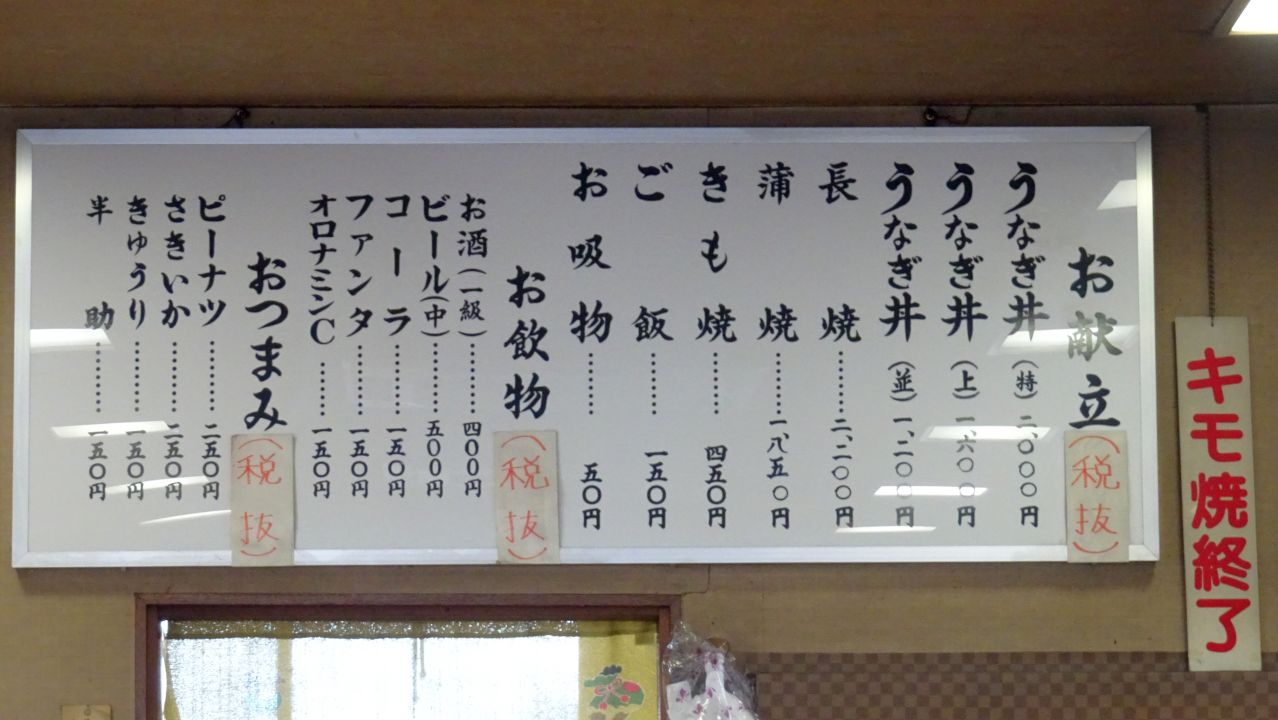 お献立(税抜)
うなぎ丼(特)二、〇〇〇円
うなぎ丼(上)一、六〇〇円
うなぎ丼(並)一、二〇〇円
長焼………二、二〇〇円
蒲焼………一、八五〇円
きも焼………四五〇円
ご飯………一五〇円
お吸物………五〇円
お飲物(税抜)
お酒(一級)………四〇〇円
ビール(中)………五〇〇円
コーラ………一五〇円
ファンタ………一五〇円
オロナミンC………一五〇円
おつまみ(税抜)
ピーナツ………二五〇円
さきいか………二五〇円
きゅうり………一五〇円
半助………一五〇円
キモ焼終了